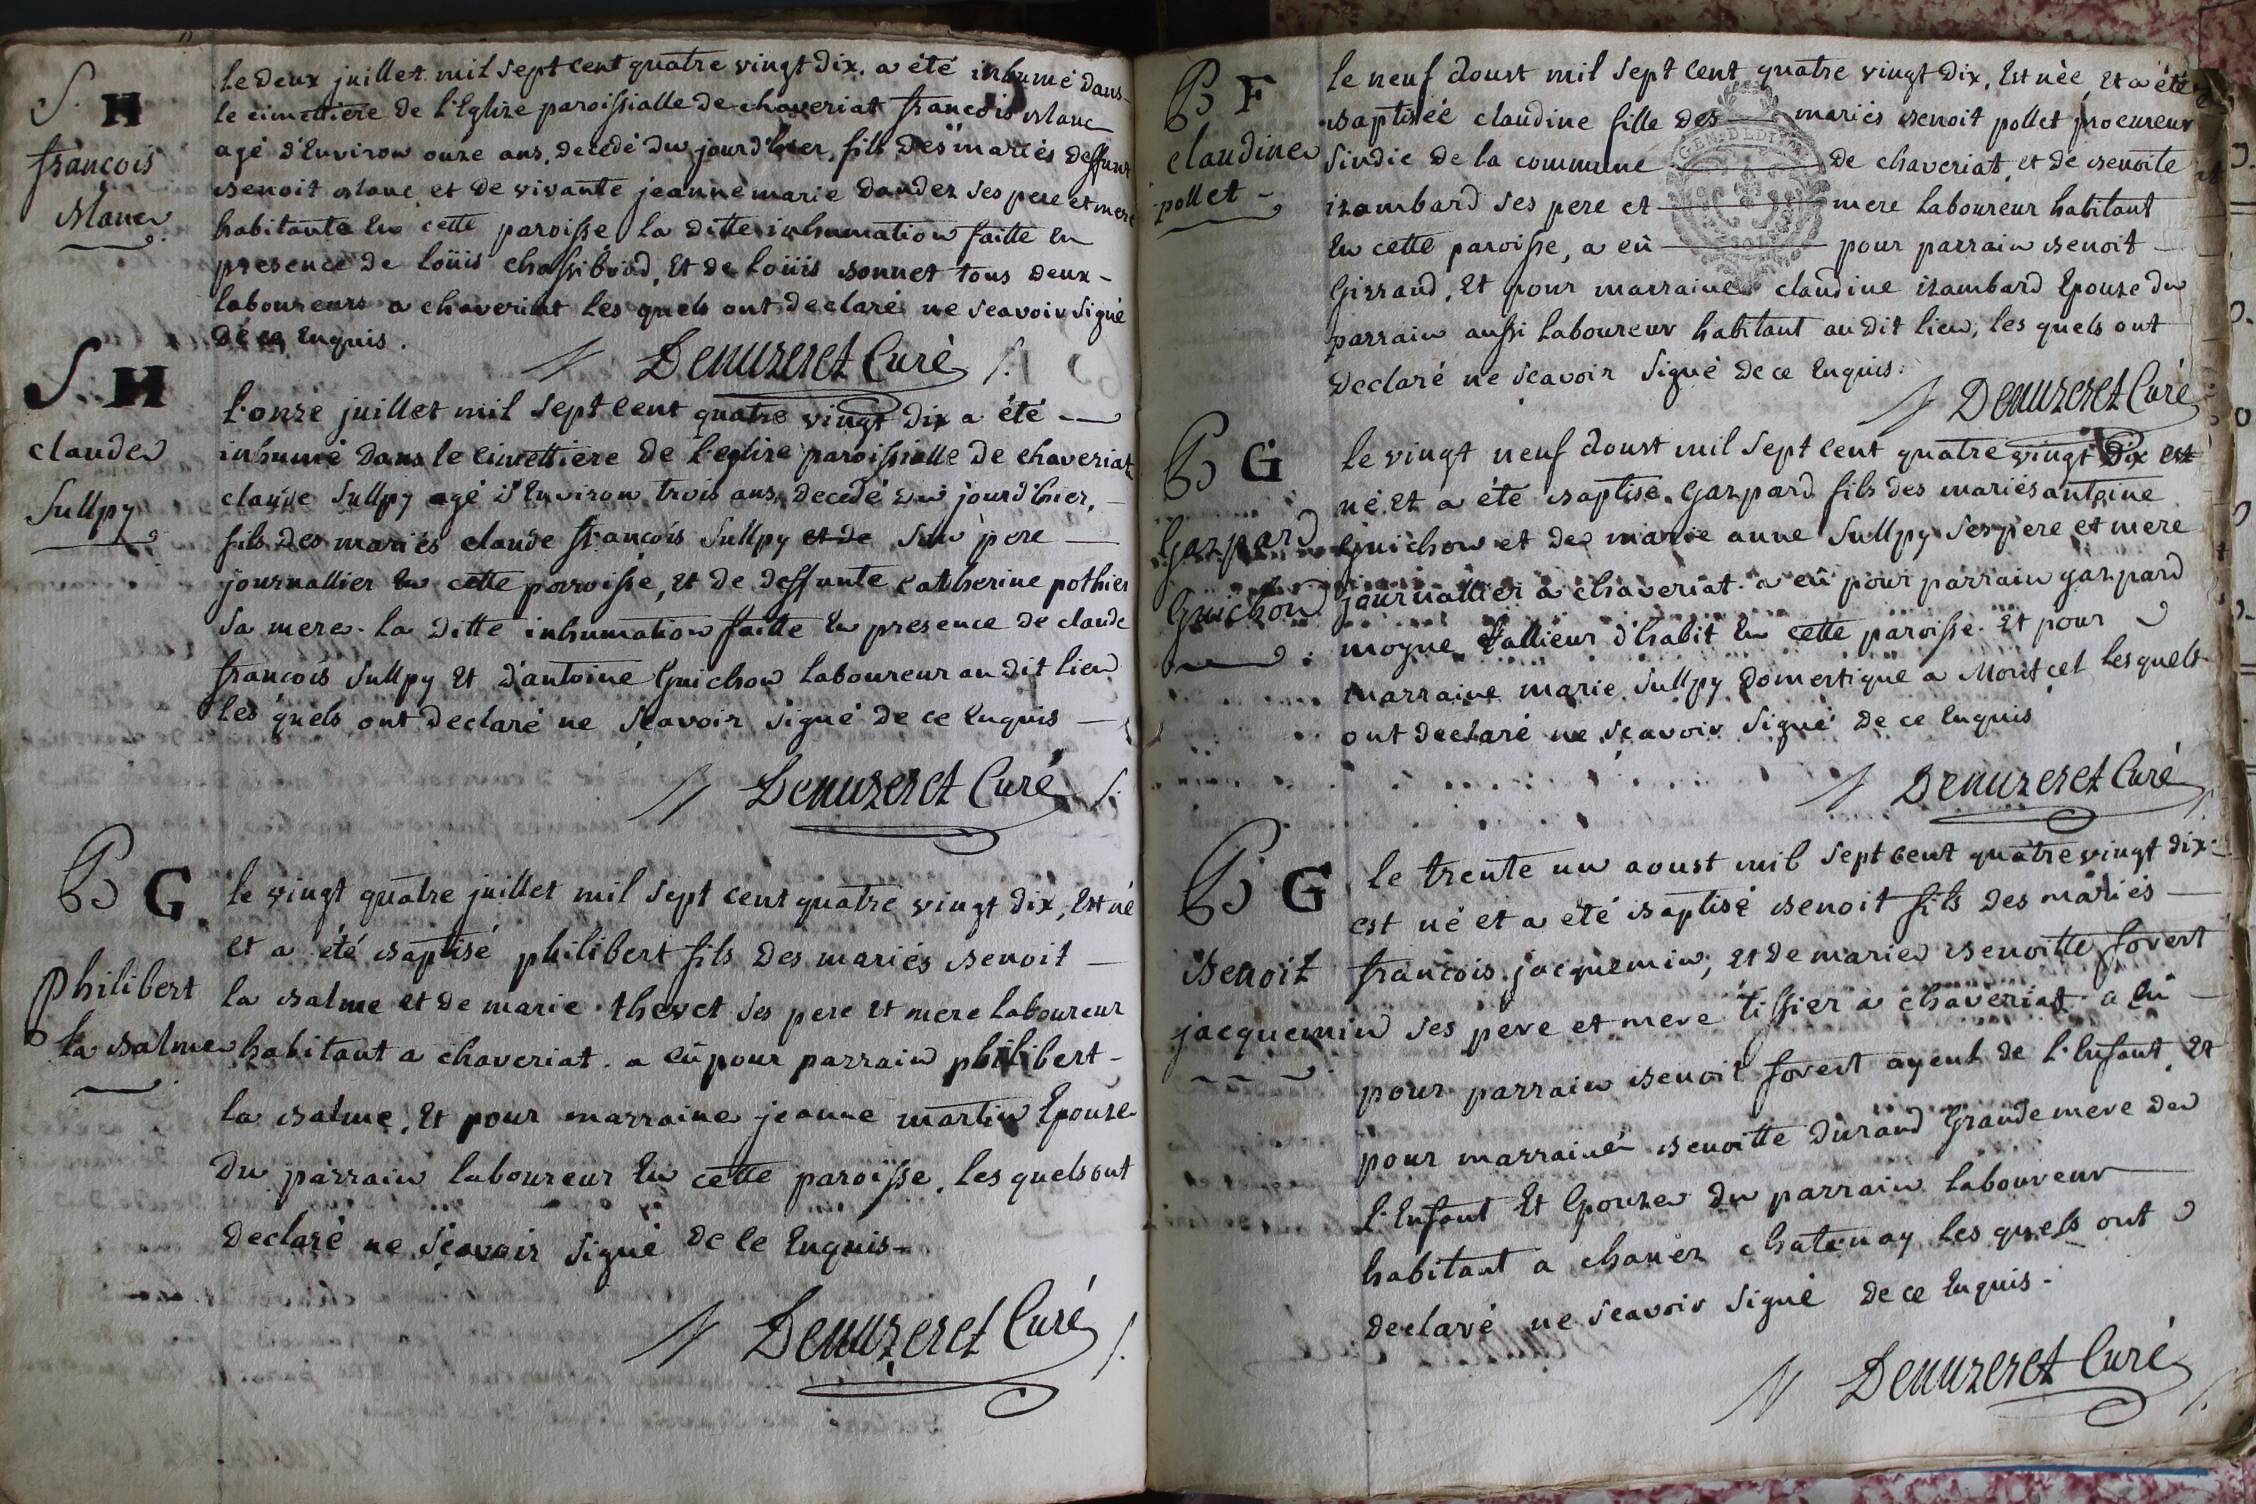 S. H
françois
Blanc
le deux juillet mil sept cent quatre vingt dix. a été inhumé dans
le cimettiere de l'Eglize paroissialle de chaveriat françois Blanc
agé d'Environ onze ans, decedé du jourd'hier, fils des mariés deffunt
Benoit Blanc, et de vivante jeanne marie dandez ses pere et mere
habitante En cette paroisse la ditte inhumation faitte En
presence de loüis chassiböud, Et de loüis Bonnet tous deux
laboureurs a chaveriat les quels ont declaré ne sçavoir signé
de ce Enquis.
Demuzeret Curé
S. H
claude
Sullpy
L'onze juillet mil sept cent quatre vingt dix a été
inhumé dans le cimettiere de l'eglize paroissialle de chaveriat
claude Sullpy agé d'Environ trois ans, decedé du jourd'hier,
fils des mariés claude françois Sullpy et de son pere
journallier En cette paroisse, Et de deffunte catherine pothier
sa mere. la ditte inhumation faitte En presence de claude
françois Sullpy Et d'antoine Guichon laboureur au dit lieu
les quels ont declaré ne sçavoir signé de ce Enquis
Demuzeret Curé
B G
Philibert
la Balme
le vingt quatre juillet mil sept cent quatre vingt dix, Est né
et a été Baptisé philibert fils des mariés Benoit
la Balme et de marie thevet ses pere Et mere laboureur
habitant a chaveriat. a eû pour parrain philibert
la Balme, Et pour marraine jeanne martin Epouze
du parrain laboureur En cette paroisse, les quels ont
declaré ne sçavoir signé de ce Enquis
Demuzeret Curé
B F
claudine
pollet
le neuf doust mil sept cent quatre vingt dix, Est née, Et a été
Baptisée claudine fille des mariés Benoit pollet procureur
sindic de la commune de chaveriat, et de Benoite
izambard ses pere et mere laboureur habitant
En cette paroisse, a eû pour parrain Benoit
Girrand, Et pour marraine claudine izambard Epouze du
parrain aussi laboureur habitant au dit lieu, les quels ont
declaré ne sçavoir signé de ce Enquis.
Demuzeret Curé
B G
Gaspard
Guichon
le vingt neuf doust mil sept cent quatre vingt dix est
né Et a été Baptisé Gaspard fils des mariés antoine
Guichon et de marie anne Sullpy ses pere et mere
journallier a chaveriat. a eû pour parrain gaspard
moyne tallieur d'habit En cette paroisse. Et pour
marraine marie Sullpy domestique a Montcet lesquels
ont declaré ne sçavoir signé de ce Enquis
Demuzeret Curé
B G
Benoit
jacquemin
le trente un aoust mil sept cent quatre vingt dix
est né et a été Baptisé Benoit fils des mariés
françois jacquemin, Et de marie Benoitte fovert
ses pere et mere tissier a chaveriat a Eû
pour parrain Benoit fovert ayeul de l'Enfant, Et
pour marraine Benoitte durand Grande mere de
l'Enfant Et Epouze du parrain laboureur
habitant a chanoz chatenay les quels ont
declaré ne sçavoir signé de ce Enquis.
Demuzeret Curé